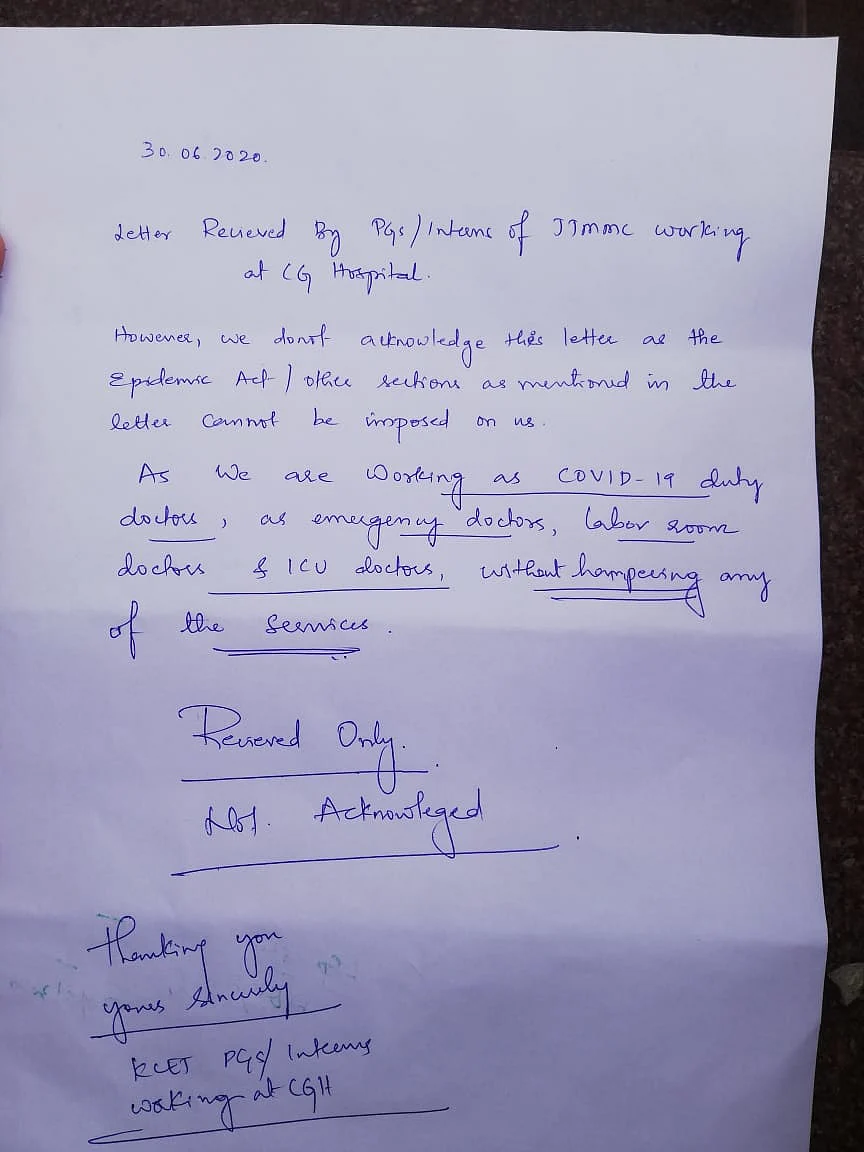 30.06.2020.
Letter Recieved By PGs/Interns of JJMMC working
at CG Hospital.
However, we donot acknowledge this letter as the
Epidemic Act / other sections as mentioned in the
letter cannot be imposed on us.
As We are Working as COVID-19 duty
doctors, as emergency doctors, labor room
doctors & ICU doctors, without hampering any
of the services.
Recieved Only.
Not. Acknowleged
Thanking you
yours sincerely
KCET PGs/ Interns
working at CGH